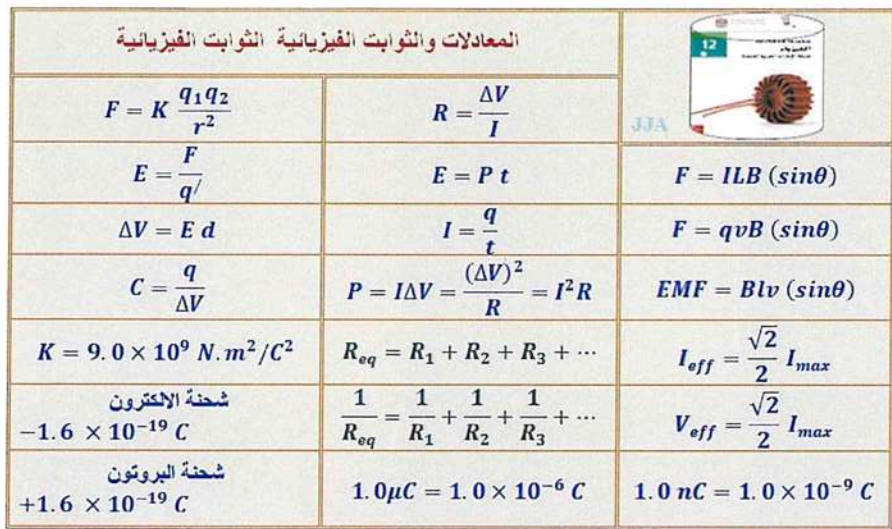 المعادلات والثوابت الفيزيائية الثوابت الفيزيائية
12
الفيزياء
JJA
F = K q₁q₂ / r²
R = ΔV / I
E = F / q′
E = P t
F = ILB (sinθ)
ΔV = E d
I = q / t
F = qvB (sinθ)
C = q / ΔV
P = IΔV = (ΔV)² / R = I²R
EMF = Blv (sinθ)
K = 9.0 × 10⁹ N.m²/C²
R_eq = R₁ + R₂ + R₃ + ⋯
I_eff = √2 / 2 I_max
شحنة الالكترون
−1.6 × 10⁻¹⁹ C
1/R_eq = 1/R₁ + 1/R₂ + 1/R₃ + ⋯
V_eff = √2 / 2 I_max
شحنة البروتون
+1.6 × 10⁻¹⁹ C
1.0μC = 1.0 × 10⁻⁶ C
1.0 nC = 1.0 × 10⁻⁹ C